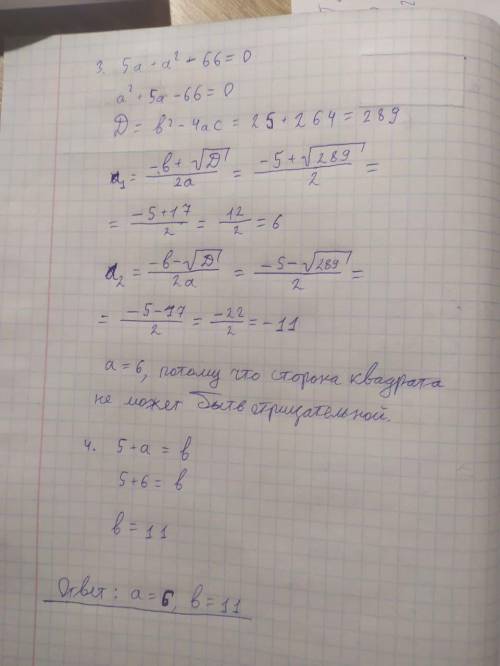 3. 5a + a² - 66 = 0
a² + 5a - 66 = 0
D = в² - 4ac = 25 + 264 = 289
a₁ = (-в + √D)/2a = (-5 + √289)/2 =
= (-5+17)/2 = 12/2 = 6
a₂ = (-в - √D)/2a = (-5 - √289)/2 =
= (-5-17)/2 = -22/2 = -11
a = 6, потому что сторона квадрата
не может быть отрицательной.
4. 5 + a = в
5 + 6 = в
в = 11
Ответ: a = 6, в = 11